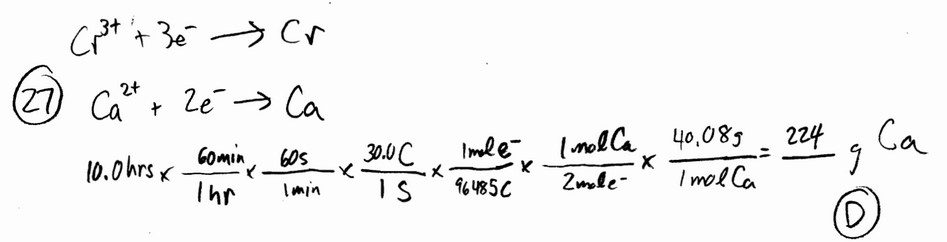 Cr³⁺ + 3e⁻ → Cr
27 Ca²⁺ + 2e⁻ → Ca
10.0hrs × 60min/1hr × 60s/1min × 30.0C/1S × 1mole⁻/96485C × 1molCa/2mole⁻ × 40.08g/1molCa = 224 g Ca
D